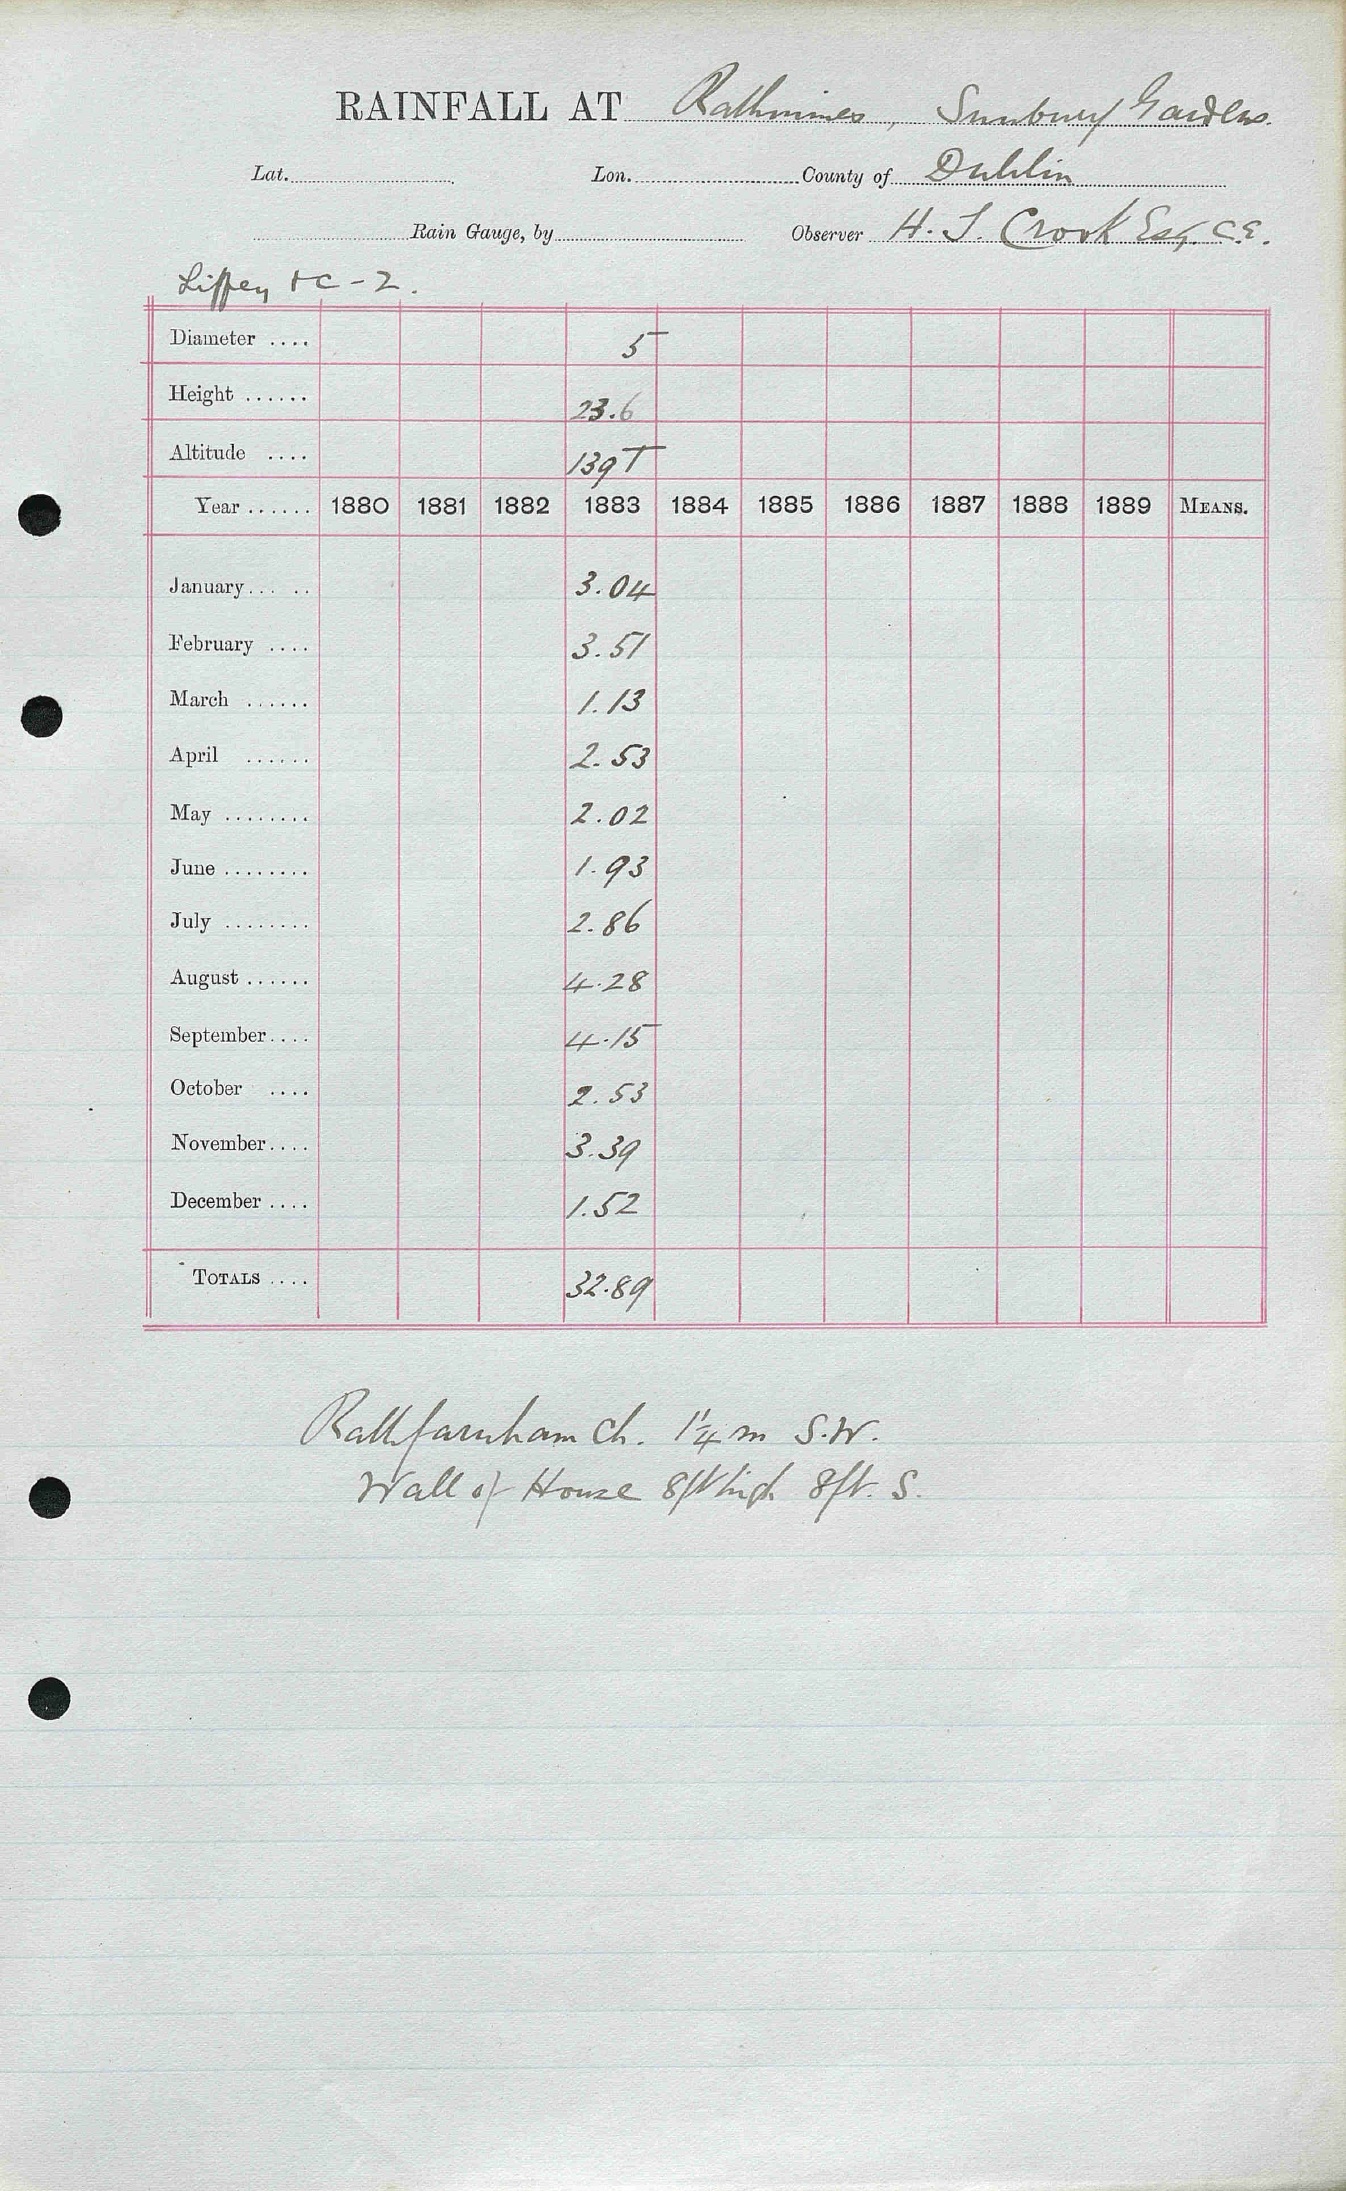 RAINFALL AT Rathmines, Sunbury Gardens.
Lat. Lon. County of Dublin
Rain Gauge, by Observer H. T. Crook Esq. C.E.
Liffey + C - 2.
Diameter .... 5
Height ...... 23.6
Altitude .... 139 T
Year ...... 1880 1881 1882 1883 1884 1885 1886 1887 1888 1889 MEANS.
January... .. 3.04
February .... 3.51
March ...... 1.13
April ...... 2.53
May ........ 2.02
June ........ 1.93
July ........ 2.86
August ...... 4.28
September.... 4.15
October .... 2.53
November.... 3.39
December .... 1.52
TOTALS .... 32.89
Rathfarnham Ch. 1¼ m S.W.
Wall of House 8ft high 8ft. S.